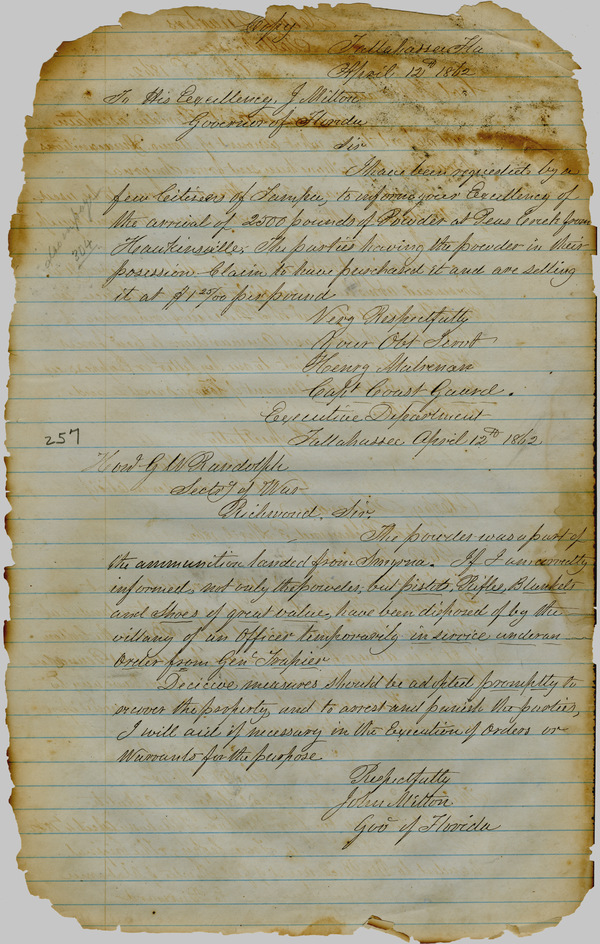 Copy
Tallahassee Fla
April 12th 1862
To His Excellency J Milton
Governor of Florida
Sir
I have been requested by a
few Citizens of Tampa, to inform your Excellency of
the arrival of 2500 pounds of Powder at Peas Creek from
Hawkinsville. The parties having the powder in their
posession Claim to have purchased it and are selling
it at $1 25/00 per pound
Very Respectfully
Your Obt Servt
Henry Mulrenan
Capt Coast Guard.
Executive Department
Tallahassee April 12th 1862
257
304
Hon G W Randolph
Secty of War
Richmond. Sir.
The powder was a part of
the ammunition landed from Smyrna. If I am correctly
informed, not only the powder, but pistols, Rifles, Blankets
and Shoes of great value, have been disposed of by the
villany of an Officer temporarily in service under an
Order from Genl Trapier
Decicive measures should be adopted promptly to
recover the property, and to arrest and punish the parties,
I will aid if necessary in the Execution of Orders or
Warrants for the purpose
Respectfully
John Milton
Gov of Florida